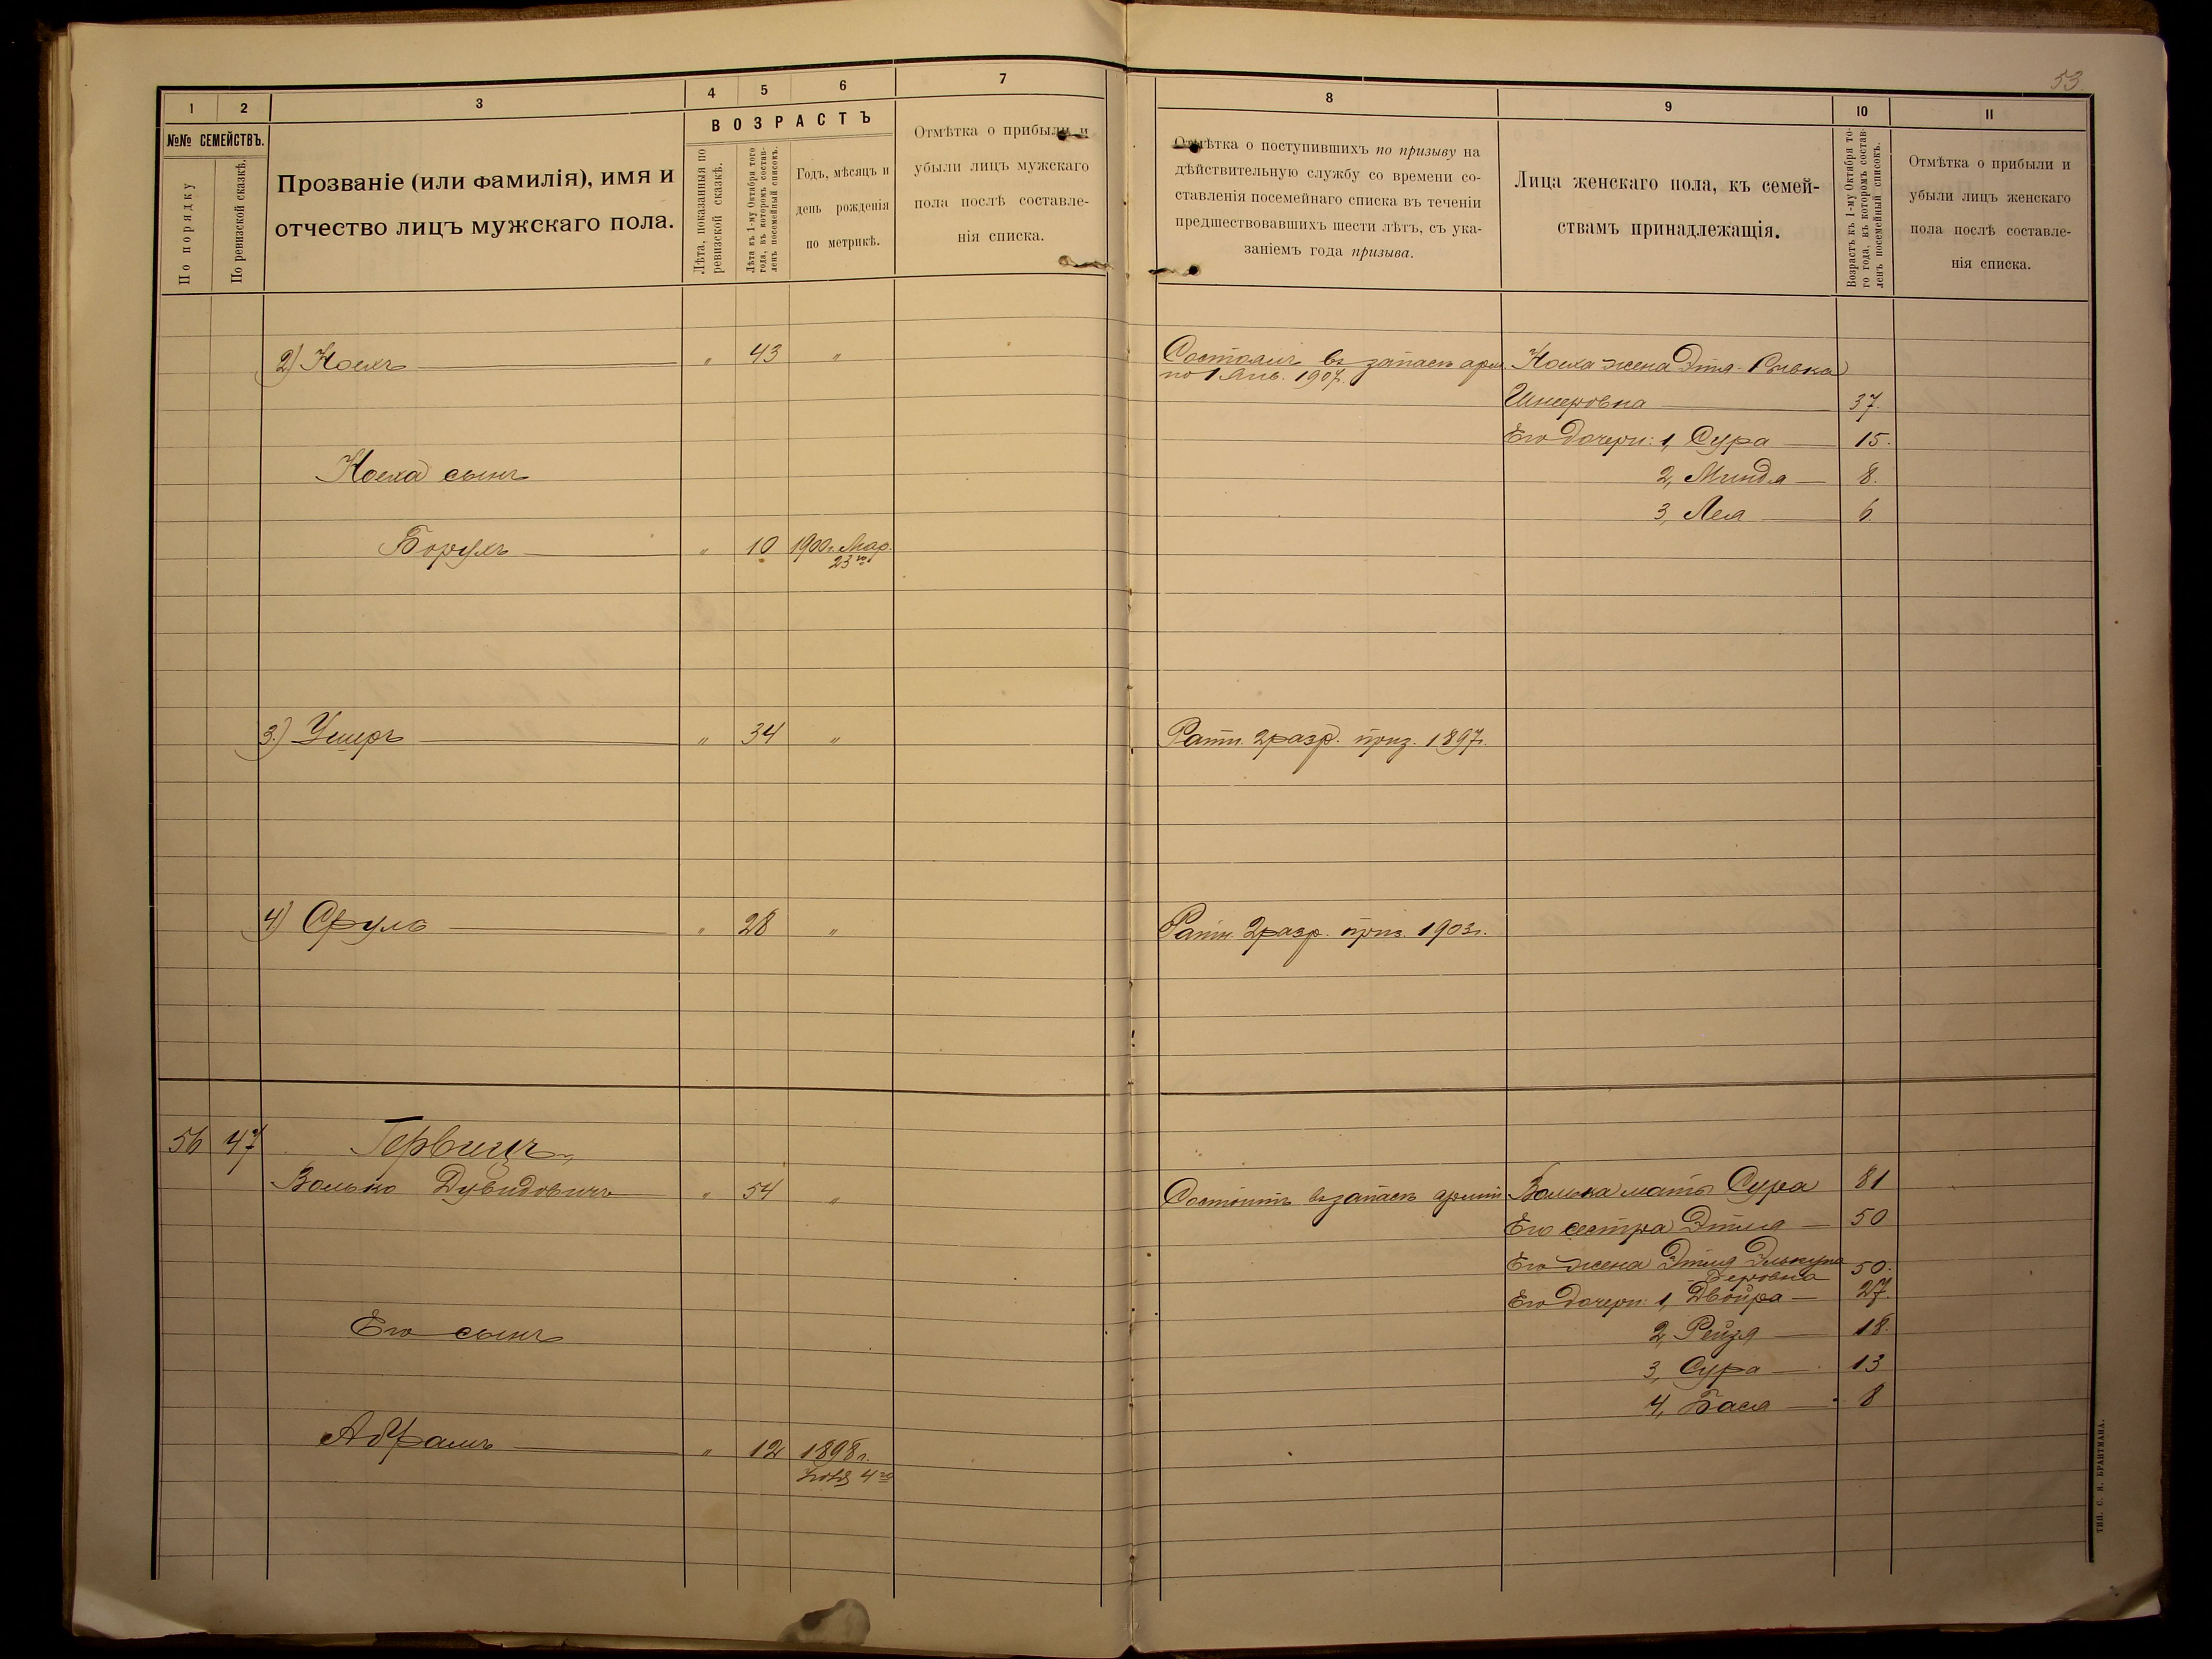 53
1
2
3
4
5
6
7
8
9
10
11
№№ СЕМЕЙСТВЪ.
По порядку
По ревизской сказкѣ.
Прозваніе (или фамилія), имя и
отчество лицъ мужскаго пола.
ВОЗРАСТЪ
Лѣта, показанныя по
ревизской сказкѣ.
Лѣта къ 1-му Октября того
года, въ которомъ состав-
ленъ посемейный списокъ.
Годъ, мѣсяцъ и
день рожденія
по метрикѣ.
Отмѣтка о прибыли и
убыли лицъ мужскаго
пола послѣ составле-
нія списка.
Отмѣтка о поступившихъ по призыву на
дѣйствительную службу со времени со-
ставленія посемейнаго списка въ теченіи
предшествовавшихъ шести лѣтъ, съ ука-
заніемъ года призыва.
Лица женскаго пола, къ семей-
ствамъ принадлежащія.
Возрастъ къ 1-му Октября то-
го года, въ которомъ состав-
ленъ посемейный списокъ.
Отмѣтка о прибыли и
убыли лицъ женскаго
пола послѣ составле-
нія списка.
2) Ноехъ — " 43 " "
Состоялъ въ запасѣ арм.
по 1 Янв. 1907.
Ноеха жена Этя-Рывка
Шнееровна — 37.
Его дочери: 1, Сура — 15.
2, Миндя — 8.
3, Лея — 6.
Ноеха сынъ
Борухъ — " 10 1900г. Мар.
23го
3.) Ушеръ — " 34 "
Ратн. 2 разр. приз. 1897г.
4) Сруль — " 28 "
Ратн. 2 разр. приз. 1903г.
56 47 Гервицъ,
Волько Дувидовичъ — " 54 "
Состоитъ въ запасѣ арміи
Волька мать Сура 81
Его сестра Этля — 50
Его жена Этля
50.
Его дочери: 1, Двойра — 27.
2, Рейзя — 18.
3, Сура — 13
4, Бася — 8
Его сынъ
Абрамъ — " 12 1898г.
4го
ТИП. С. Я. БРАНТМАНА.